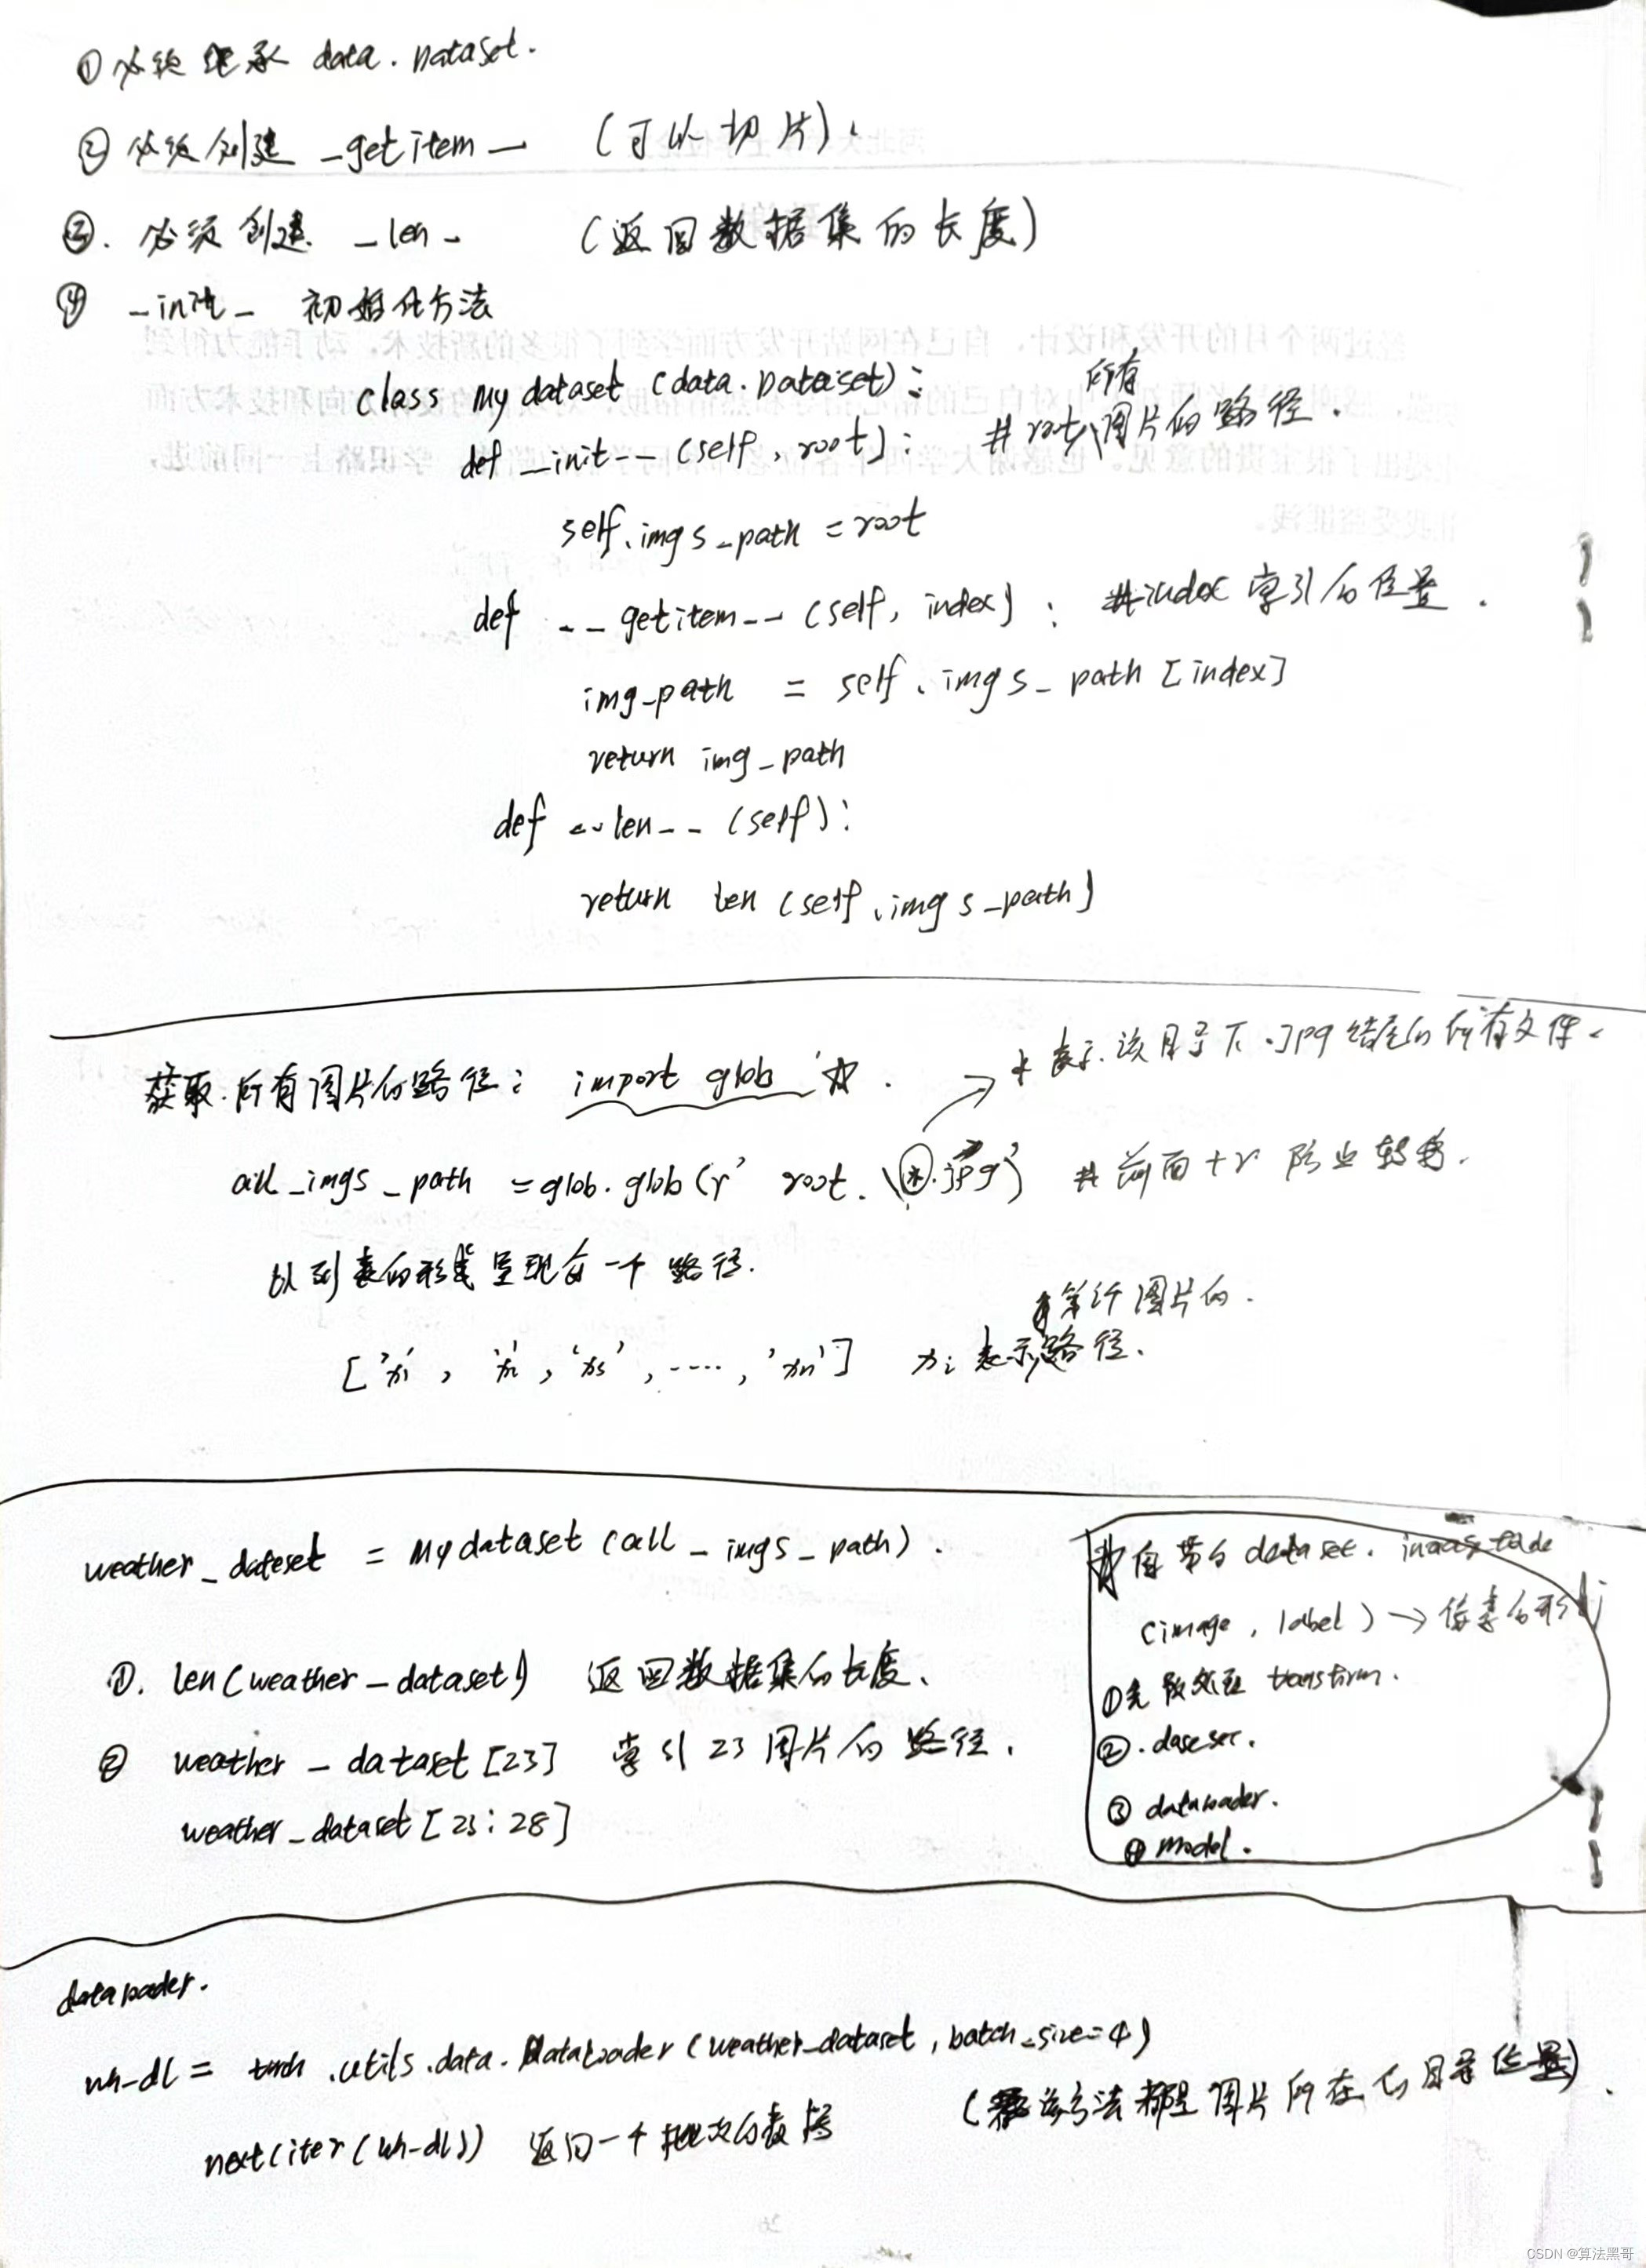 ①必须继承 data.Dataset.
②必须创建 _getitem_ (可以切片).
③. 必须创建 _len_ (返回数据集的长度)
④ _init_ 初始化方法
class Mydataset (data.Dataset):
所有
def __init__(self, root): # root 图片的路径.
self.imgs_path = root
def __getitem__(self, index): #index 索引的位置.
img_path = self.imgs_path [index]
return img_path
def __len__ (self):
return len (self.imgs_path)
* 表示该目录下.jpg结尾的所有文件.
获取所有图片的路径: import glob 库.
all_imgs_path = glob.glob(r' root.\*.jpg') # 前面+r 防止转移.
以列表的形式呈现每一个路径.
第i个图片的.
['x1', 'x2', 'x3', ...., 'xn'] xi 表示路径.
weather_dataset = Mydataset (all_imgs_path).
#自带的 dataset.
(image, label) →
①先预处理 transform.
②.
③ dataloader.
④ model.
①. len(weather_dataset) 返回数据集的长度.
② weather_dataset[23] 索引 23 图片的路径.
weather_dataset[23:28]
dataloader.
wh_dl = torch.utils.data.DataLoader(weather_dataset, batch_size=4)
next(iter(wh_dl)) 返回一个批次的数据 (该方法都是图片所在的目录位置).
CSDN @算法黑哥